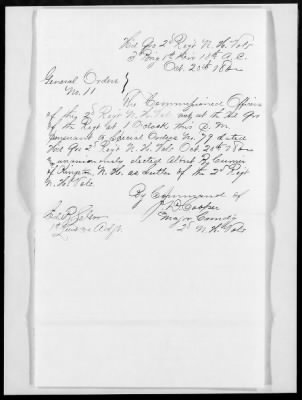 Hd Qrs 2d Regt N. H. Vols
3d Brig 1st Div 18th A. C.
Oct. 20th 1864
General Orders
No. 11
The Commissioned Officers
of the 2d Regt N. H. Vols met at the Hd Qrs
of the Regt at 1 O'clock this P. M.
pursuant to Special Orders No. 79 dated
Hd Qrs 2d Regt N. H. Vols Oct. 20th 1864
& unanimously elected Albert B.
of Kingston N. H. as Sutler of the 2d Regt
N. H. Vols.
By Command of
J. D. Cooper
Major Comdg
2d N. H. Vols
1st Lieut & Adjt.